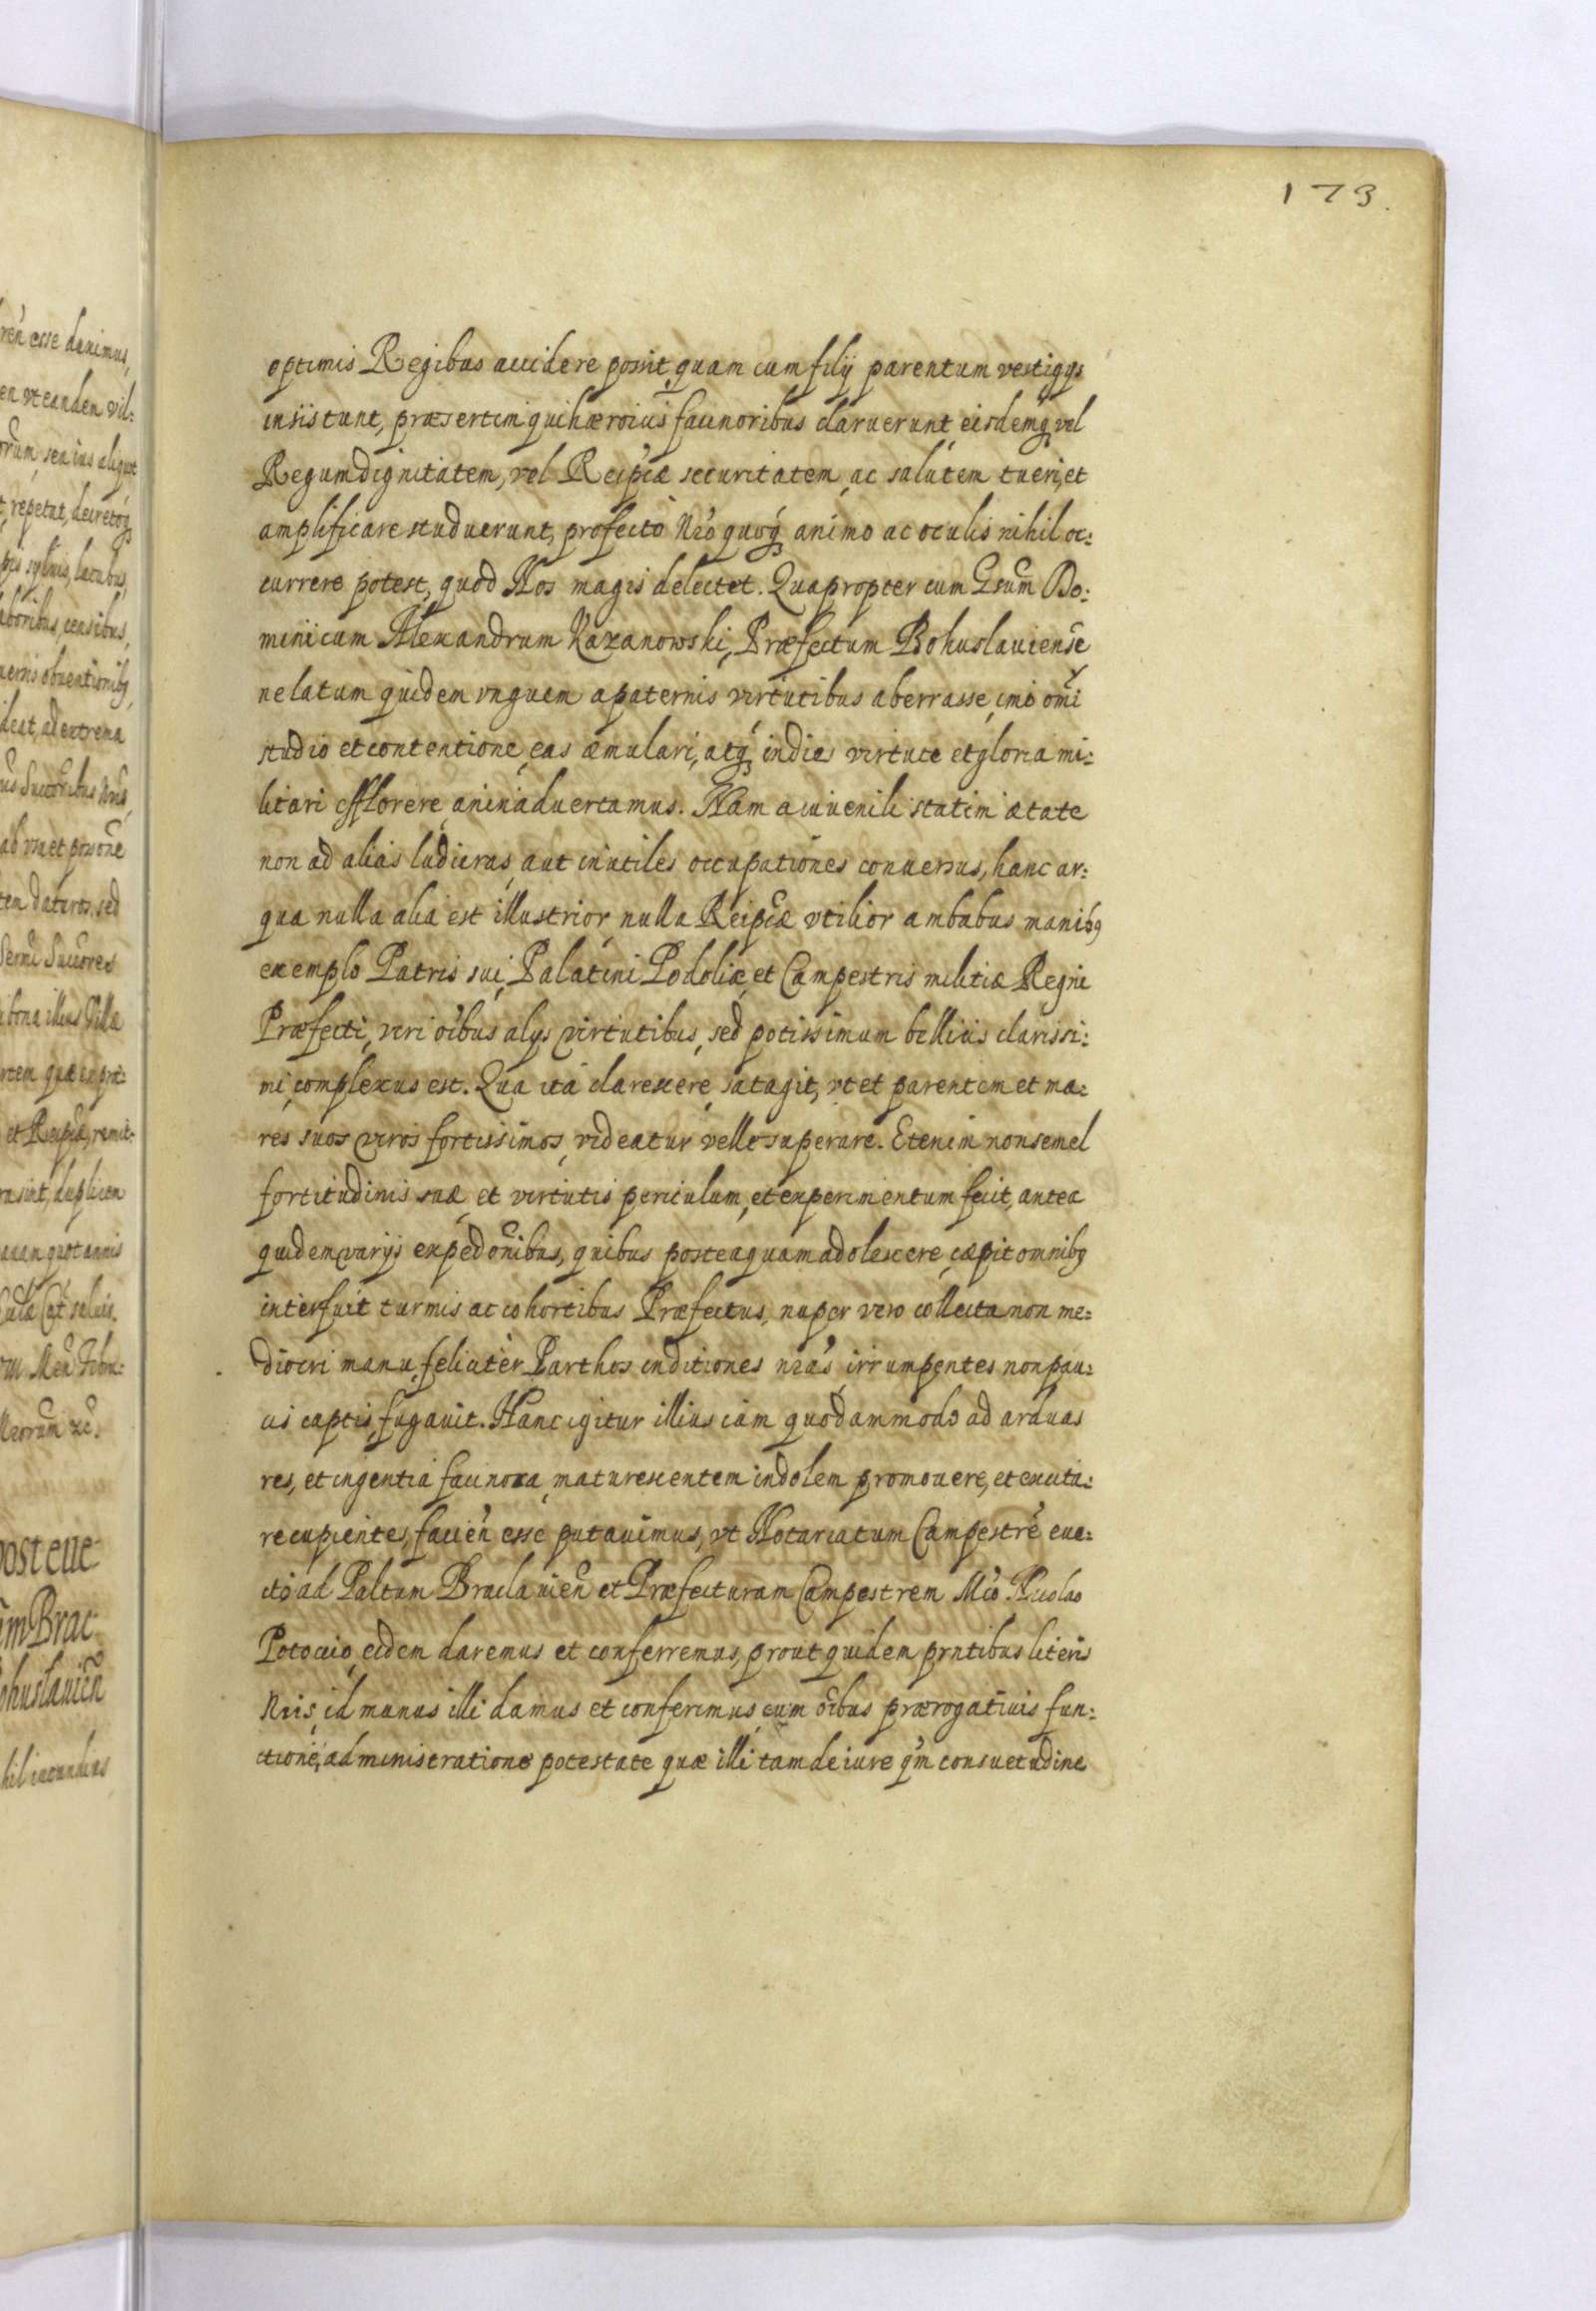 173.
optimis Regibus accidere possit, quam cum filij parentum vestigijs
insistunt, præsertim qui hæroicis facinoribus claruerunt, eisdemq́ꝫ vel
Regum dignitatem, vel Reipcæ securitatem, ac salutem tueri, et
amplificare studuerunt, profecto Nr̃o quoq́ꝫ animo ac oculis nihil oc:
currere potest, quod Nos magis delectet. Quapropter cum Gr̃sum Do:
minicum Alexandrum Kazanowski, Præfectum Bohuslauiensẽ
ne latum quidem vnguem a paternis virtutibus aberrasse, imò om̃i
studio et contentione, eas æmulari, atq́ꝫ indies virtute et gloria mi:
litari efflorere animaduertamus. Nam a iuuenili statim ætate
non ad alias ludicras, aut inutiles occupationes conuersus, hanc ar:
qua nulla alia est illustrior, nulla Reipcæ vtilior ambabus manibꝯ
exemplo Patris sui, Palatini Podoliæ, et Campestris militiæ Regni
Præfecti, viri oĩbus alijs virtutibus, sed potissimum bellicis clarissi:
mi, complexus est. Qua ita clarescere, satagit, vt et parentem et ma:
res suos viros fortissimos, videatur velle superare. Etenim non semel
fortitudinis suæ, et virtutis periculum, et experimentum fecit, antea
quidem varijs expedõnibus, quibus posteaquam adolescere, cæpit omnibꝯ
interfuit turmis ac cohortibus Præfectus, nuper vero collecta non me:
diocri manu, feliciter Parthos in ditiones nr̃as, irrumpentes non pau:
cis captis, fugauit. Hanc igitur illius iam quodammodo ad arduas
res, et ingentia facinora, maturescentem indolem promouere, et excita:
re cupientes, facień esse putauimus, vt Notariatum Campestrẽ eue:
cto ad Paltum Braclauień et Præfecturam Campestrem Mcõ Nicolao
Potocio, eidem daremus et conferremus, prout quidem prñtibus literis
Nr̃is, id munus illi damus et conferimus, cum oĩbus prærogatiuis fun:
ctione, administratione potestate quæ illi tam de iure q̃m consuetudine